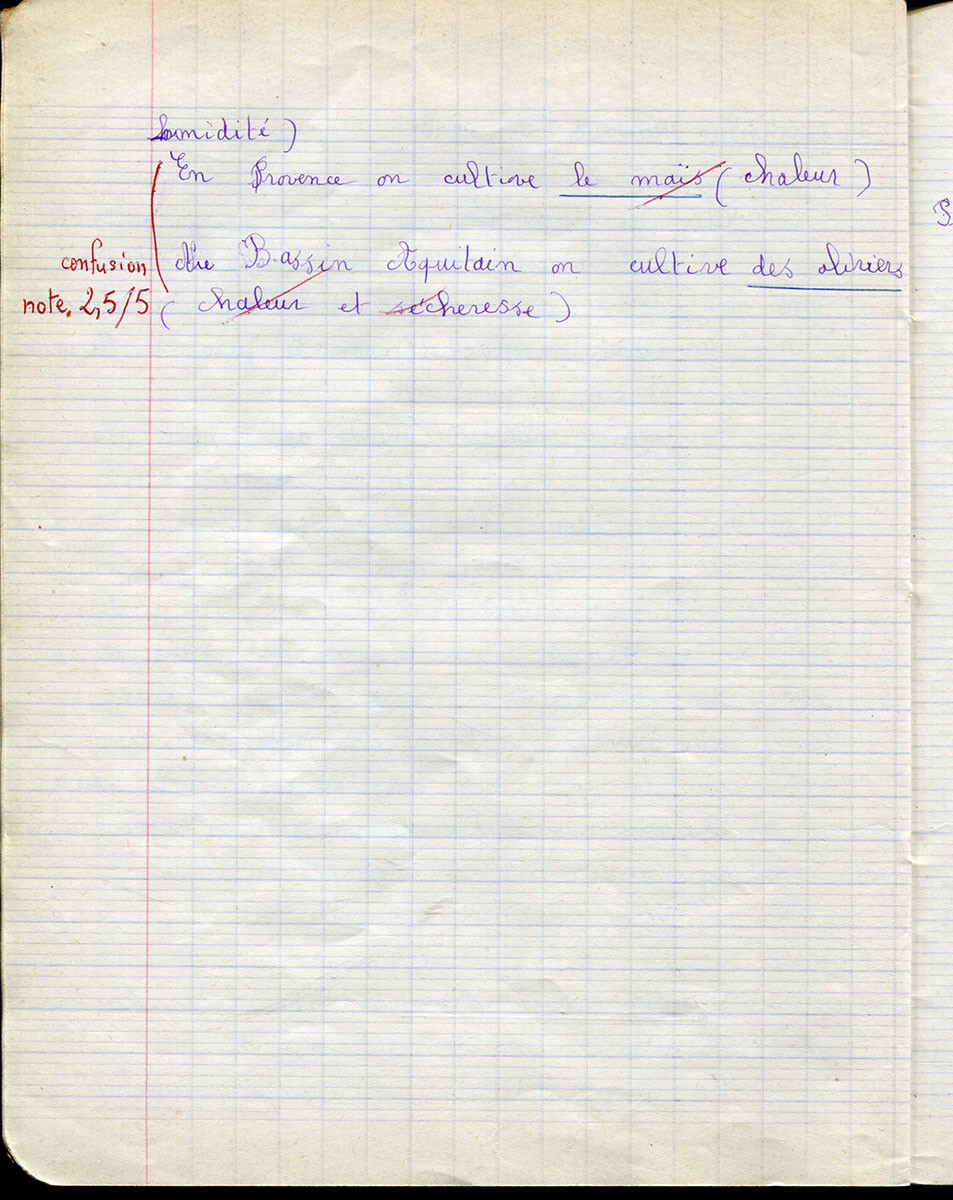 humidité)
En Provence on cultive le maïs (chaleur)
confusion Au Bassin Aquitain on cultive des oliviers
note. 2,5/5 (chaleur et sécheresse)